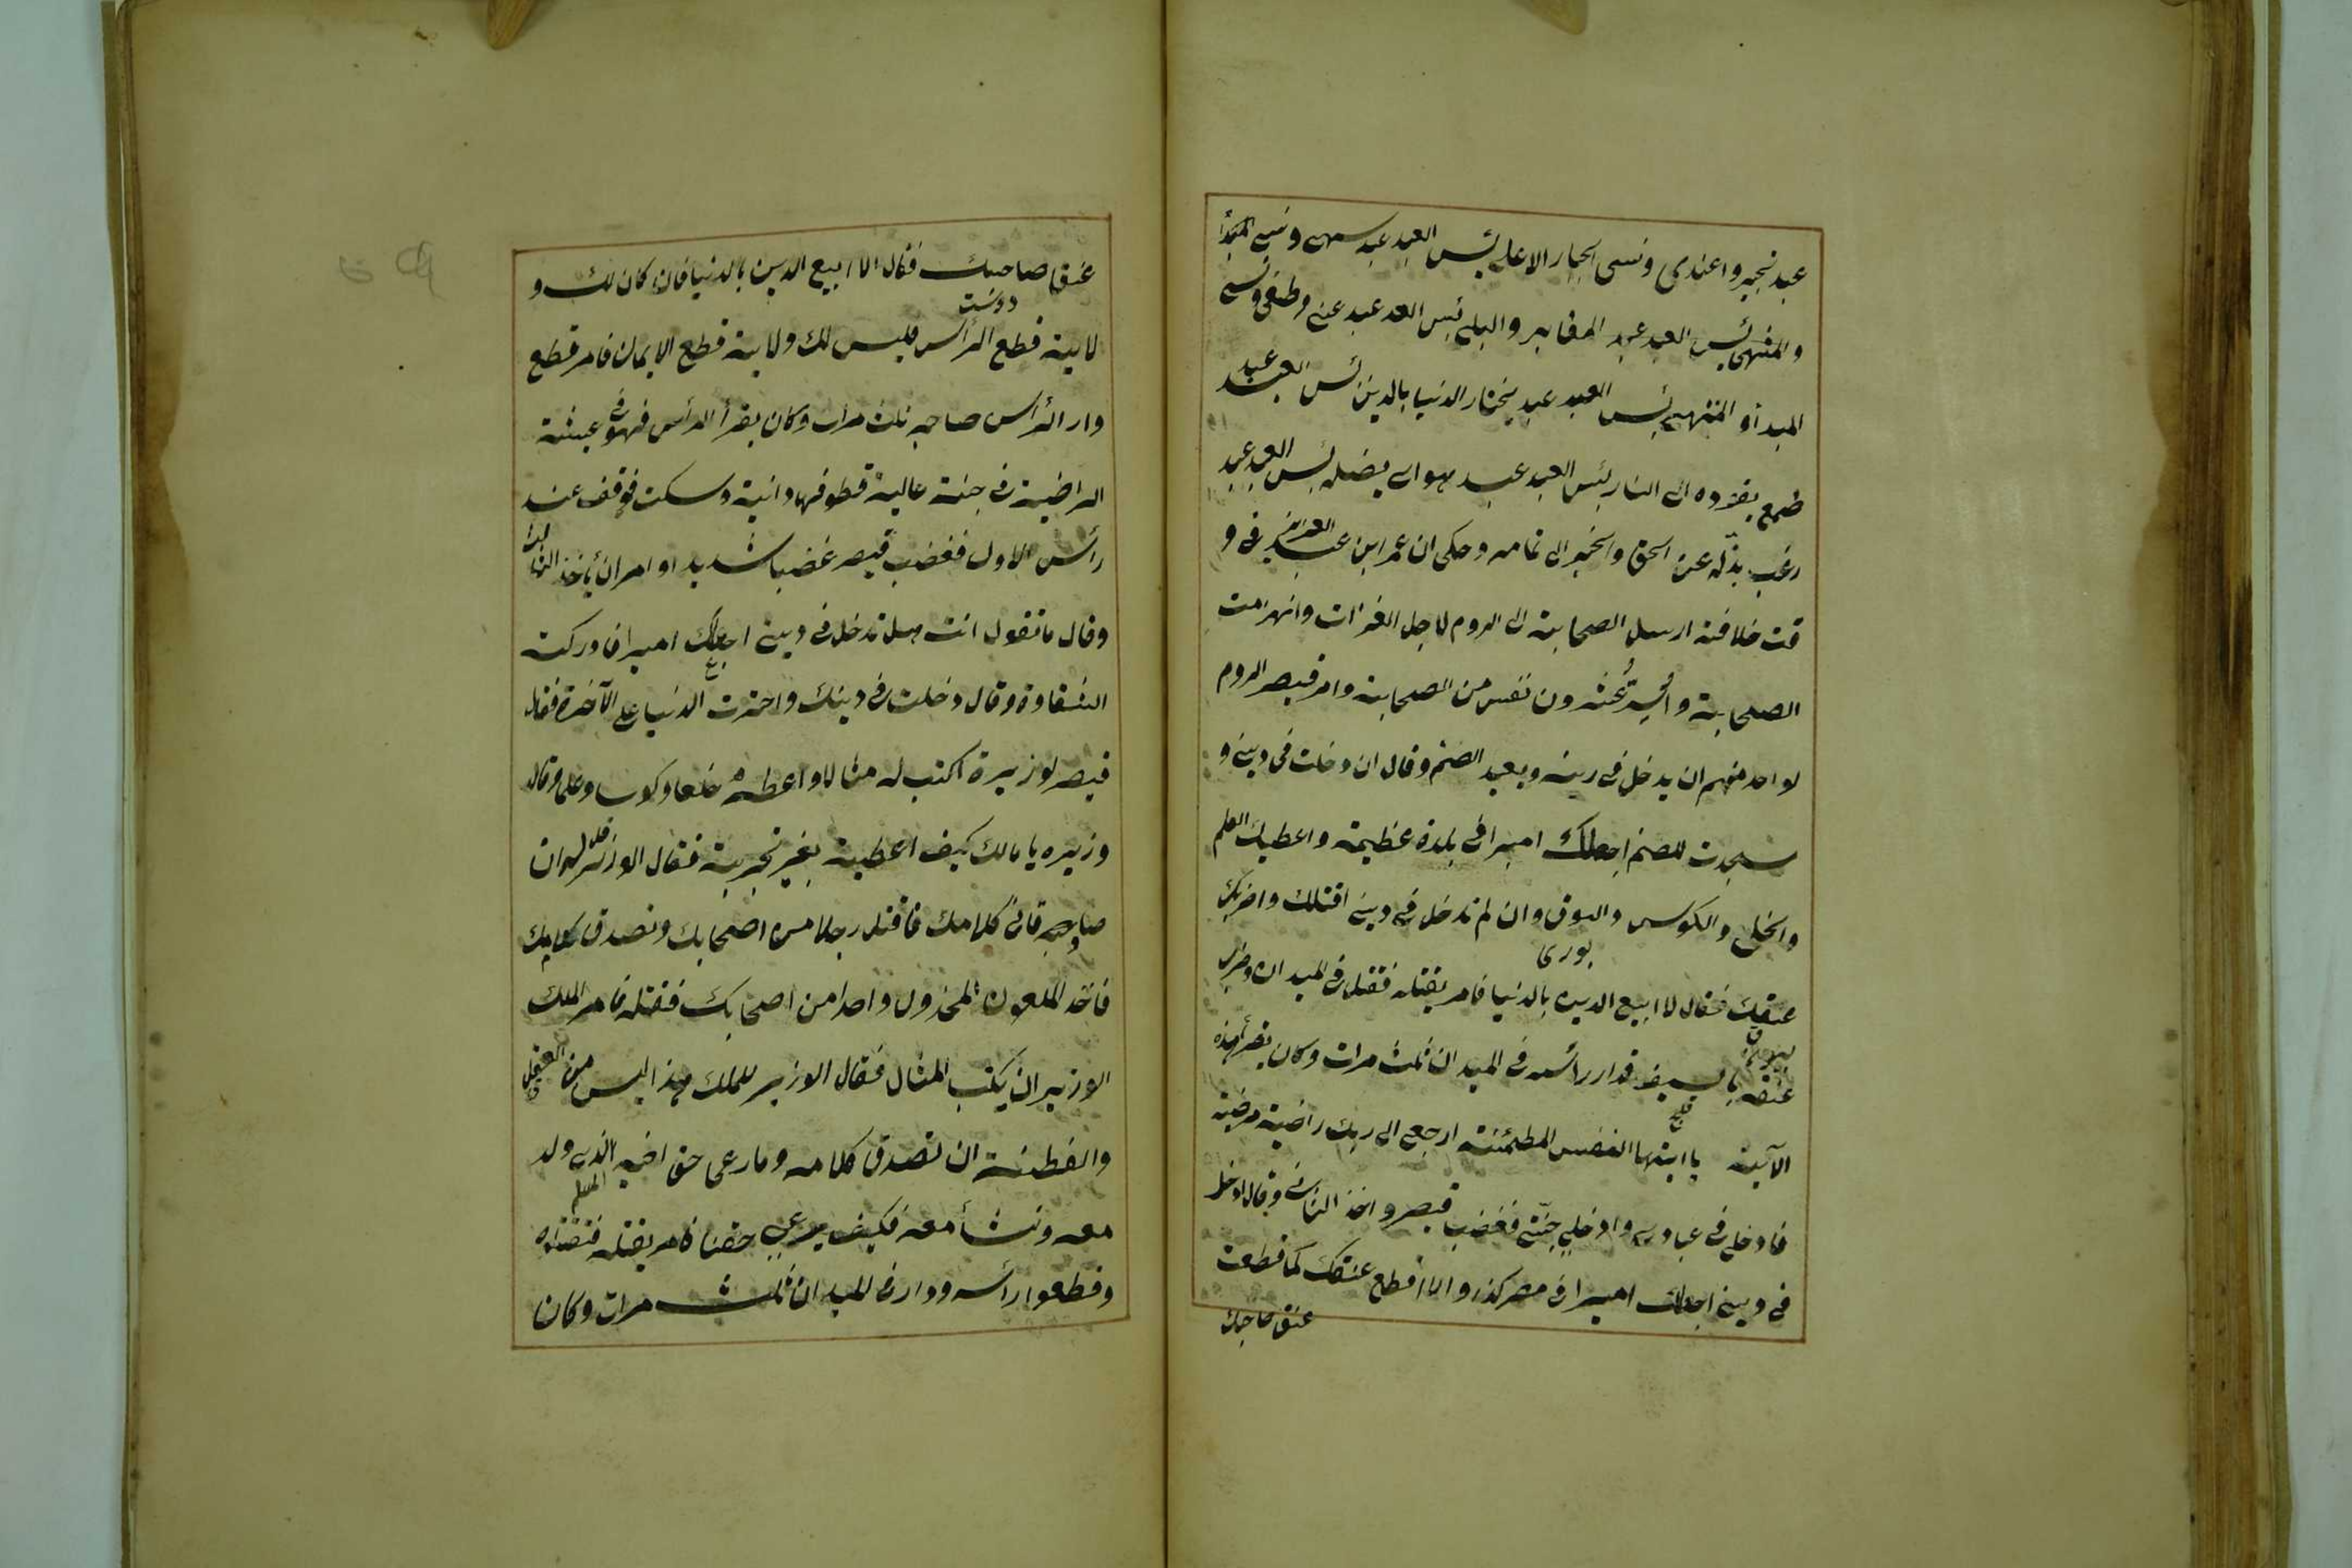 عبد تجبر واعتدى ونسى الجبار الاعلى بئس العبد عبد سهى ونسى المبدأ
والمنتهى بئس العبد عبد المقابر والبلى بئس العبد عبد عتى وطغى ونسى
المبدأ و المنتهى بئس العبد عبد يختار الدنيا بالدين بئس العبد عبد
طمع يقوده الى النار بئس العبد عبد هواى يضله بئس العبد عبد
رغب يذله عن الحق والخير الى تمامه وحكى ان عمر ابن عبد العزيز فى و
قت خلافته ارسل الصحابة الى الروم لاجل الغزات وانهزمت
الصحابة و عشرون نفس من الصحابة وامر قيصر الروم
لواحد منهم ان يدخل فى دينه ويعبد الصنم وقال ان دخلت فى دينى و
سجدت للصنم اجعلك اميرا فى بلدة عظيمة واعطيك العلم
والخلع والكوس والبوق وان لم تدخل فى دينى اقتلك واضربك
بورى
عنقك فقال لا ابيع الدين بالدنيا فامر بقتله فقتل فى الميدان وضرب
عنقه بالسيف فدار رأسه فى الميدان ثلث مرات وكان يقرأ هذه
الآية يا ايتها النفس المطمئنة ارجعى الى ربك راضية مرضية
فادخلى فى عبادى وادخلى جنتى فغضب قيصر واخذ الثانى وقال ادخل
فى دينى اجعلك اميرا فى مصر كذا والا اقطع عنقك كما قطعت
عنق صاحبك
عنق صاحبك فقال الا ابيع الدين بالدنيا فان كان لك و
دوست
لاية قطع الرأس فليس لك ولاية قطع الايمان فامر قطع
ودار الرأس صاحبه ثلث مرات وكان يقرأ الرأس فهو فى عيشة
الراضية فى جنة عالية قطوفها دانية وسكت فوقف عند
رأس الاول فغضب قيصر غضبا شديدا وامر ان يأخذ الثالث
وقال ما تقول انت هل تدخل فى دينى اجعلك اميرا فادركته
الشقاوة وقال دخلت فى دينك واخترت الدنيا على الآخرة فقال
قيصر لوزيره اكتب له مثالا واعطه خلعا وكوسا وعلما وقال
وزيره يا مالك كيف اعطيه بغير تجربة فقال الوزير قل له ان
صادق فى كلامك فاقتل رجلا من اصحابك ونصدق كلامك
فاخذ الملعون المخذول واحدا من اصحابك فقتله فامر الملك
الوزير ان يكتب المثال فقال الوزير للملك هذا ليس من العقل
والفطنة ان تصدق كلامه وما رعى حق اخيه الذى ولد
معه ونشأ معه فكيف يرعى حقنا فامر بقتله فقتلوه
وقطعوا رأسه ودار فى الميدان ثلث مرات وكان